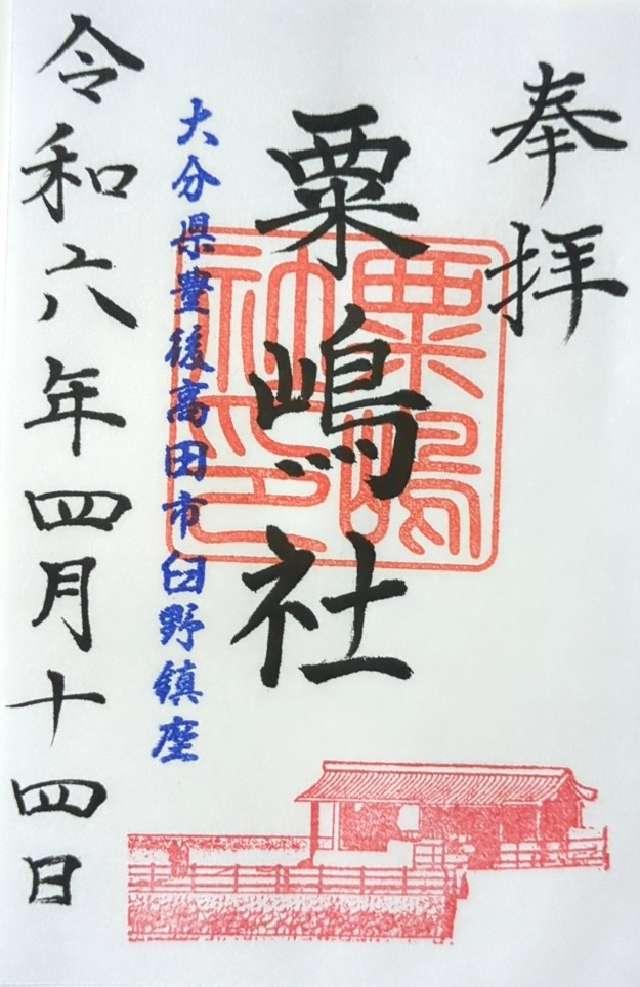 奉拝
粟嶋社
粟嶋
社印
大分県豊後高田市臼野鎮座
令和六年四月十四日